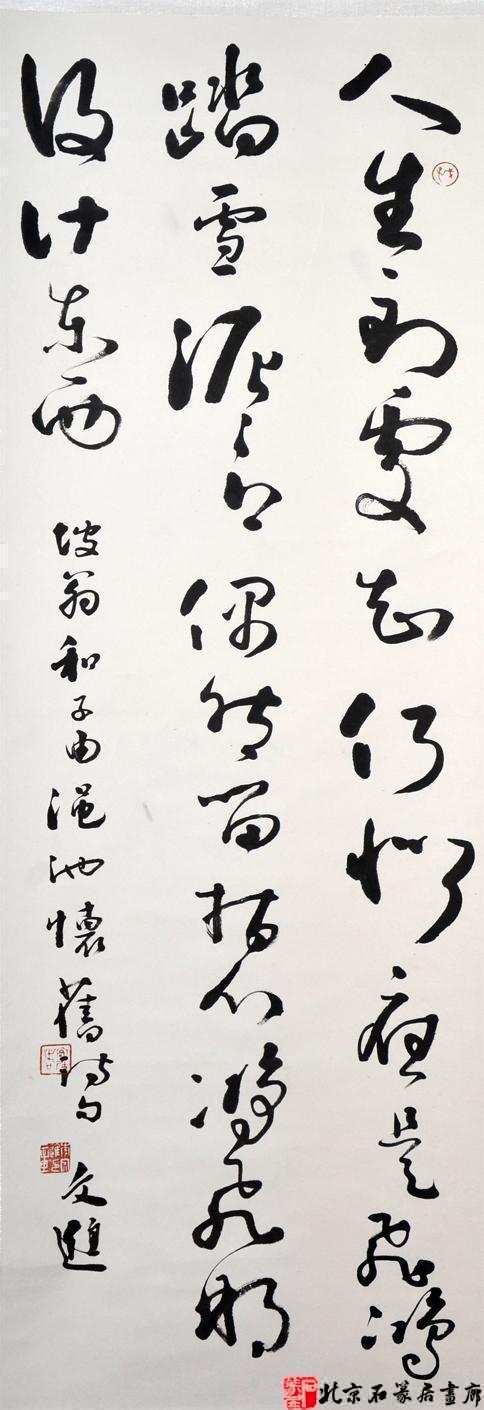 人生到處知何似應是飛鴻
踏雪泥〻上偶然留指爪鴻飛那
復計東西
坡翁和子由澠池懷舊詩句 文
北京石篆居畫廊